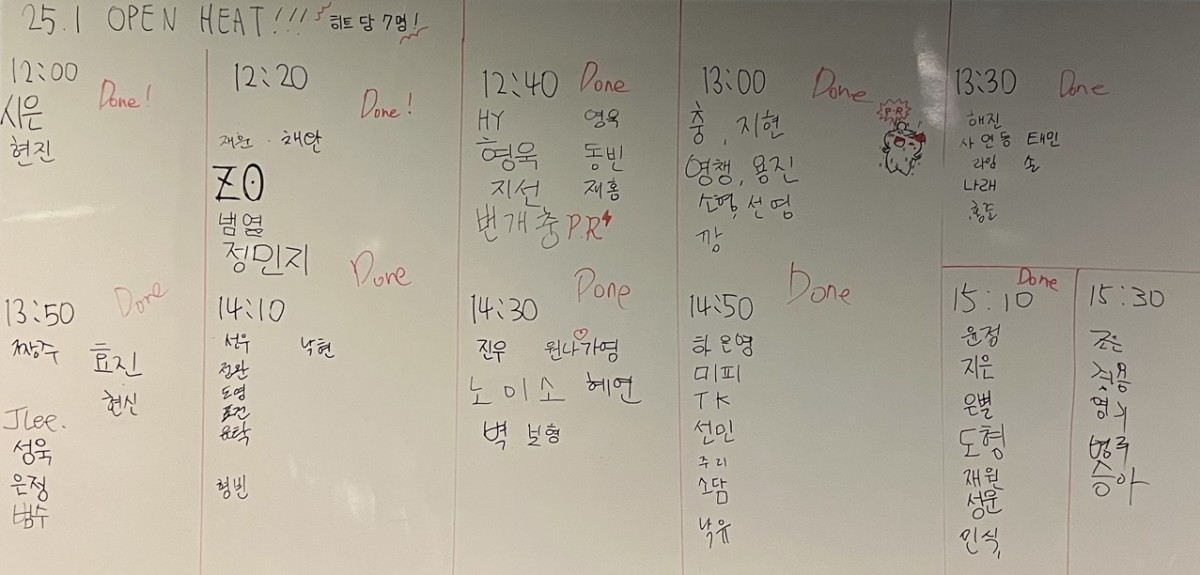 25.1 OPEN HEAT!!! 히트 당 7명!
12:00 Done!
시은
현진
12:20 Done!
재완 · 채안
ZO
범열
정민지
12:40 Done
HY 영욱
형욱 동빈
지선 재홍
번개충 P.R
13:00 Done
P.R
충, 지현
영챙, 용진
소형, 선영
깡
13:30 Done
해진
사 연동 태민
라임 솔
나래
홍도
13:50 Done
짱주 효진
현신
JLee.
성욱
은정
범수
14:10 Done
선우 낙현
전완
도영
윤탁
형빈
14:30 Done
진우 원나♡가영
노이소 혜연
벽 보형
14:50 Done
하은영
미피
TK
선민
주리
소담
낙유
15:10 Done
윤정
지은
은별
도형
재원
성문
민식,
15:30
병주
승아